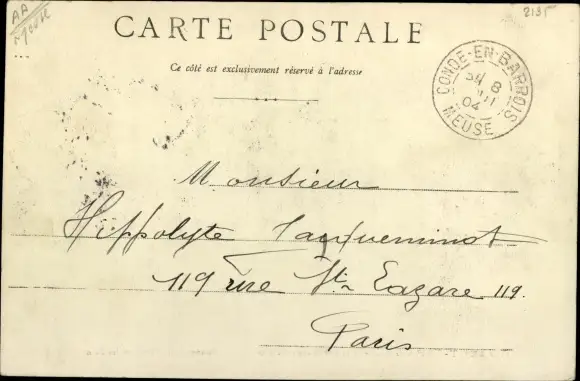 AA
2135
CARTE POSTALE
Ce côté est exclusivement réservé à l'adresse
CONDE-EN-BARROIS
8
04
MEUSE
Monsieur
Hippolyte Jacqueminot
119 rue St Lazare 119.
Paris